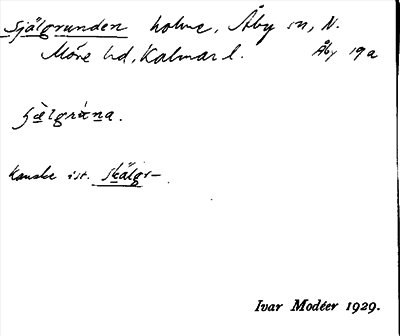 Själgrunden holme, Åby sn, N.
Möre hd, Kalmar l. Åby 19a
Kanske ist. Skälgr–
Ivar Modéer 1929.